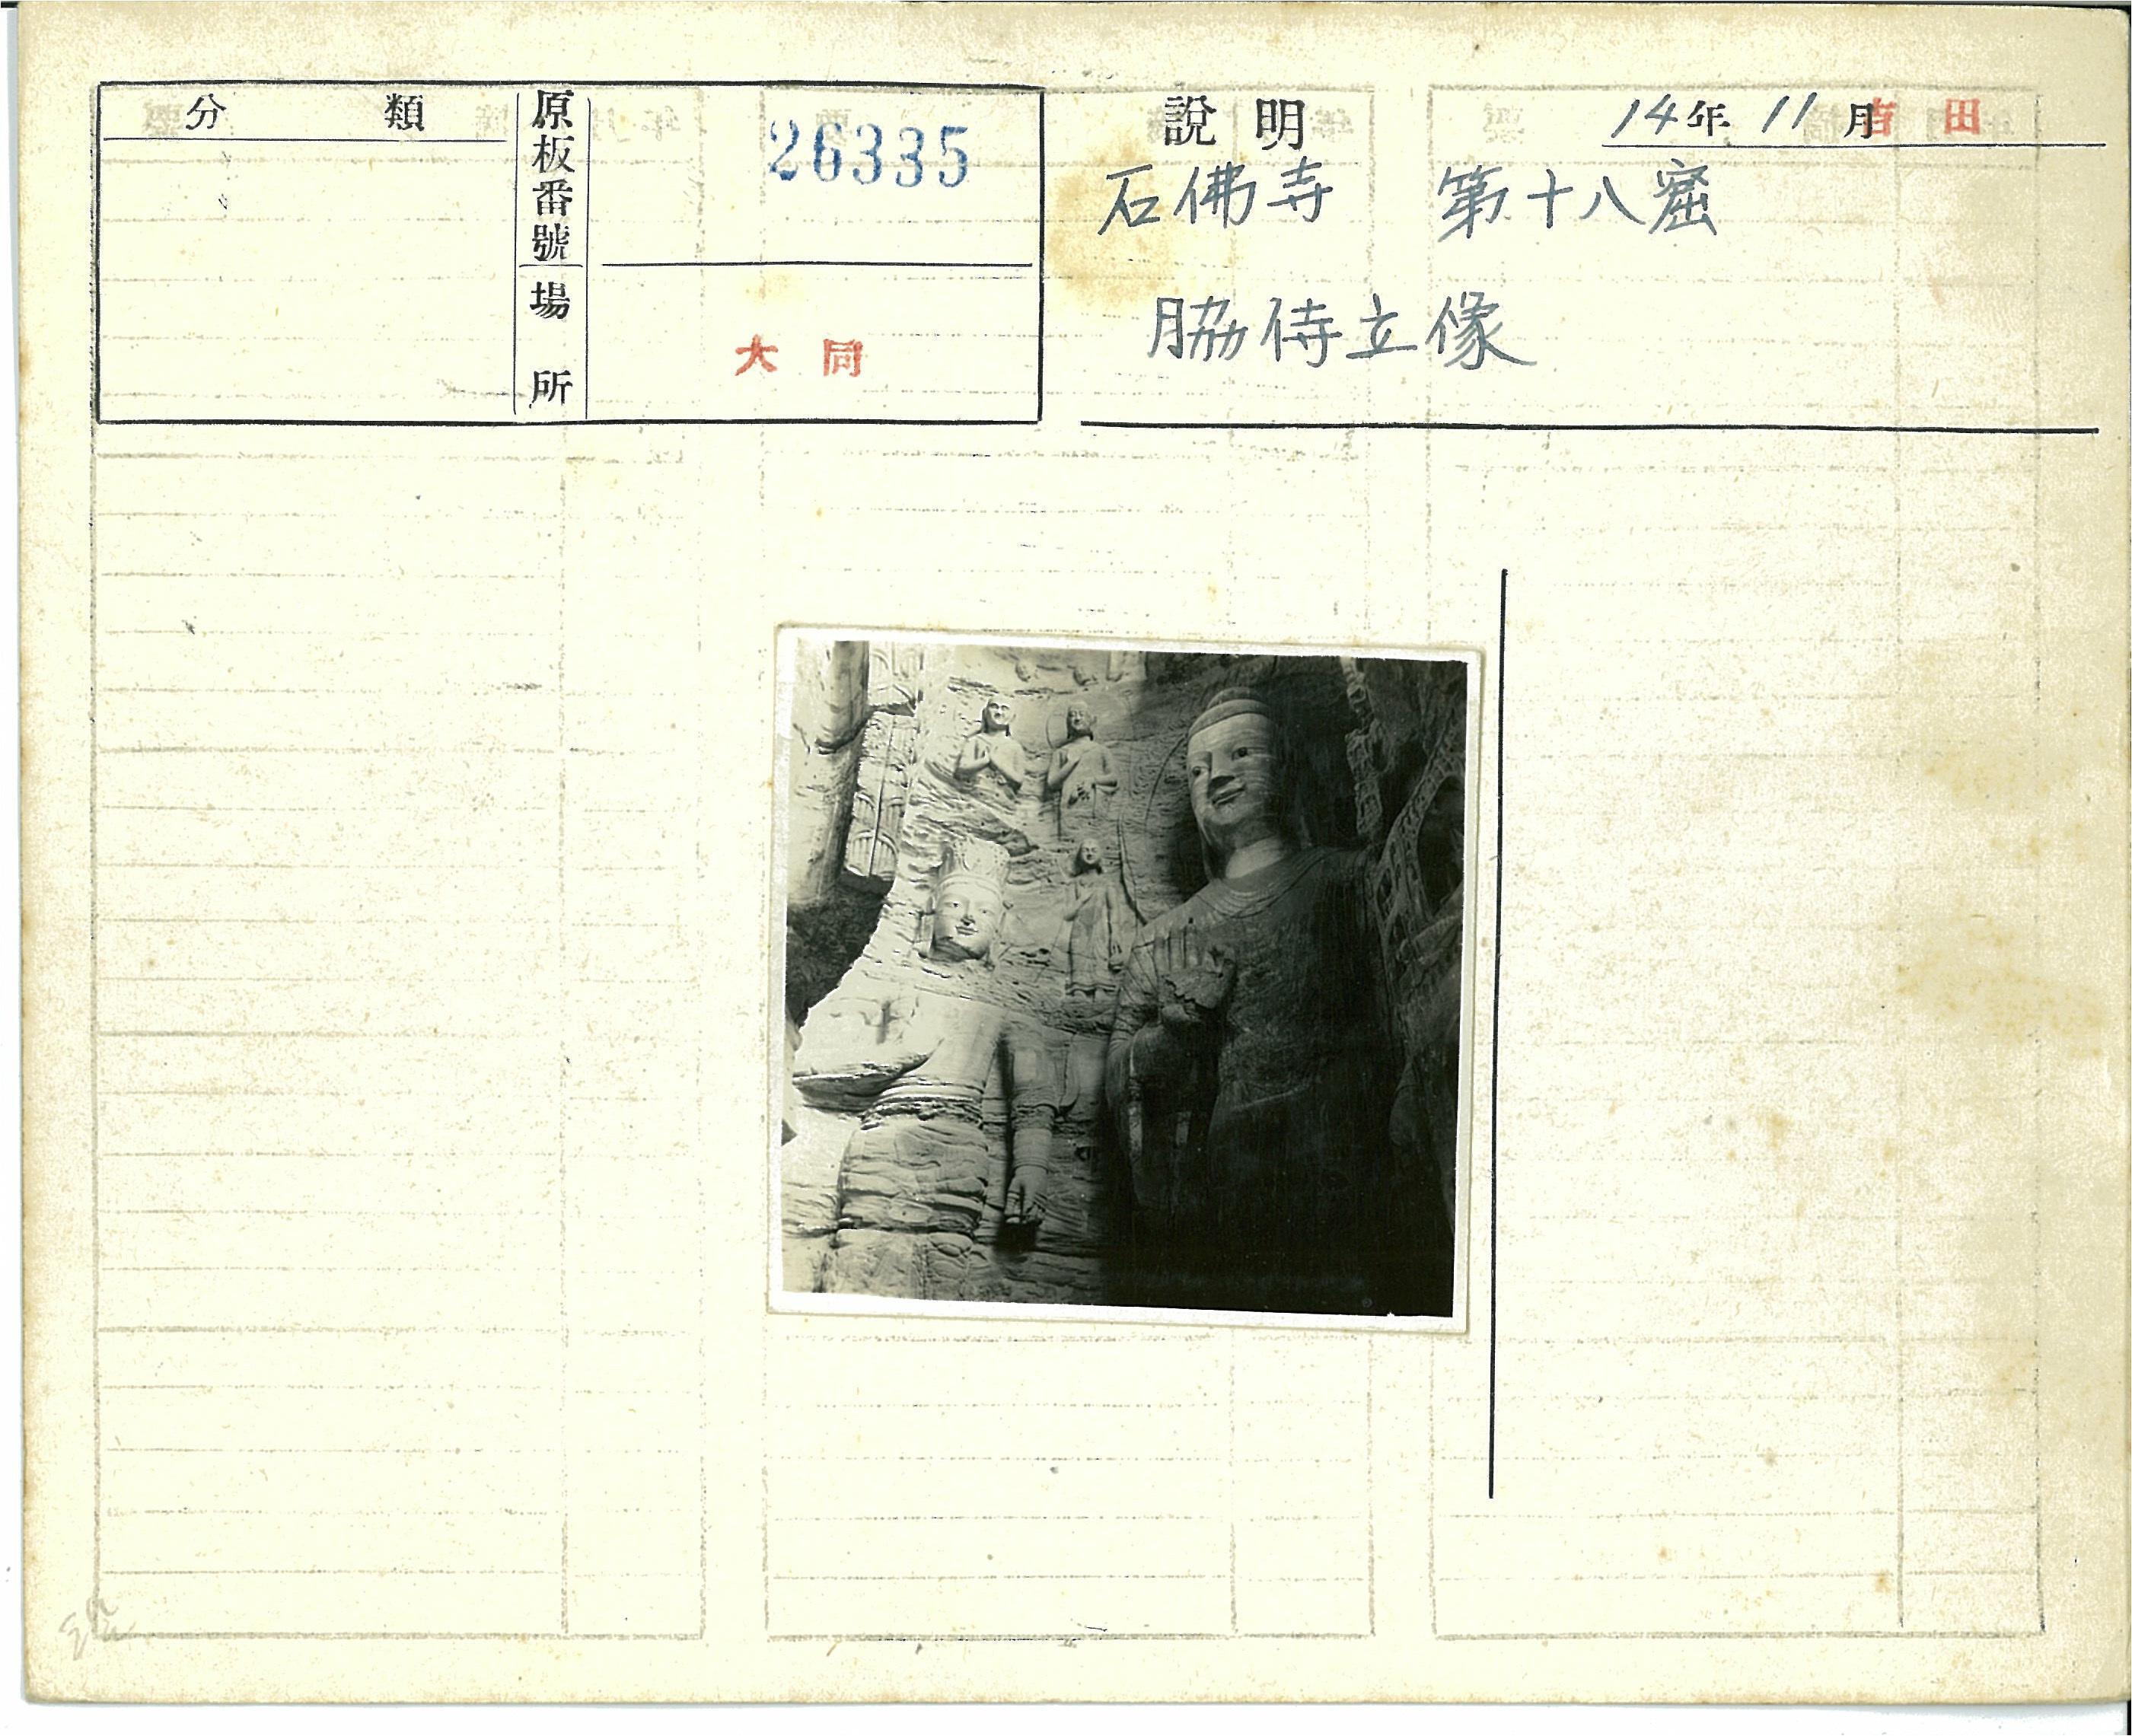 分類
原板番號
26335
場所
大同
說明
14年11月 吉田
石佛寺 第十八窟
脇侍立像